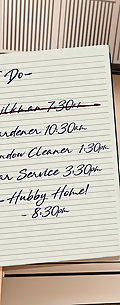 Do-
ilkman 7:30am
ardener 10:30am
ndow Cleaner 1:30pm
ar Service 3:30pm
- Hubby Home!
- 8:30pm